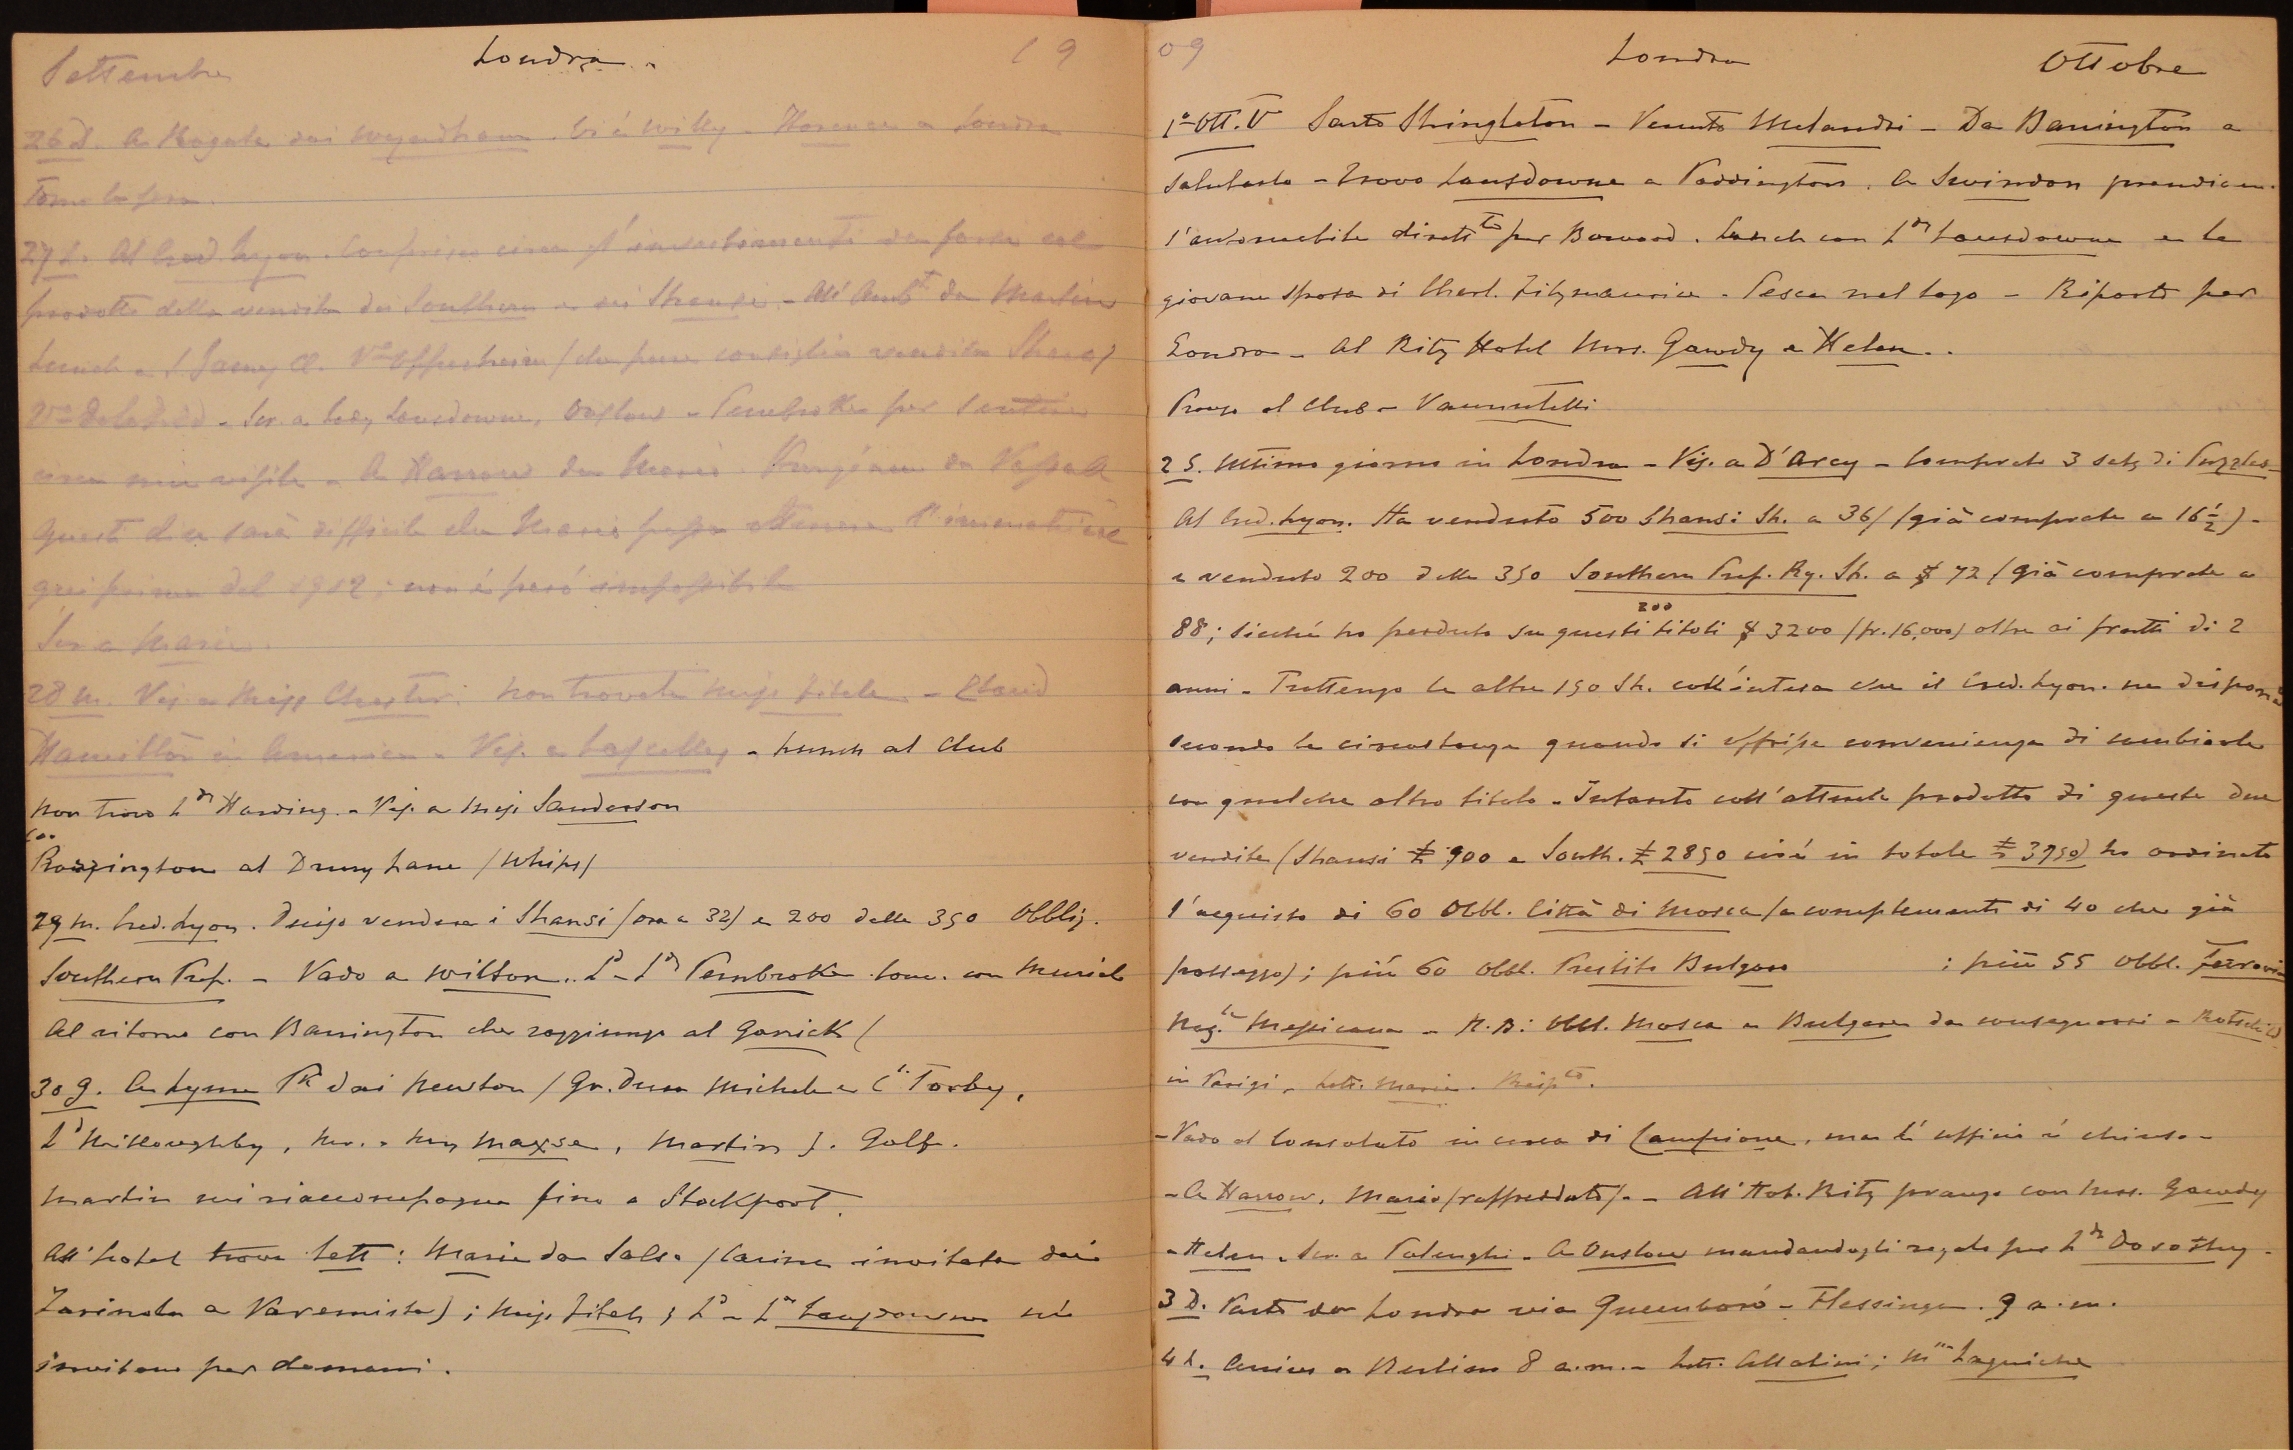 Settembre Londra. 19
26 D. A Reigate dai Wyndham. Vi è Willy. Florence a Londra
Torno la sera.
27 L. Al Cred Lyon. Confer circa l'investimento da farsi col
prodotto della vendita dei Southern e dei Shansi - All'Amb.ta da Martin
Lunch - che pure consiglia vendita Shansi)
Scr. a Lady Lansdowne, Onslow - Pembroke per
circa mia visita - A Harrow da Mario.
questi dice sarà difficile che Mario possa ottenere l'
qui prima del 1912; non è però impossibile
Scr a Maria.
28 M. Vis. a Miss Chester. Non trovate Miss Fitch -
Hamilton in America - Vis. a Lascelles - Lunch al Club
Non trovo L.dy Harding. - Vis. a Miss Sanderson
Con
Barrington al Drury Lane (Whips)
29 M. Cred. Lyon. Deciso vendere i Shansi (ora a 32) e 200 delle 350 Obblig.
Southern Pref. - Vado a Wilton.. L.d - L.dy Pembroke con Muriel
Al ritorno con Barrington che raggiungo al Garrick (
30 G. A Lyme Pk dai Newton (Gr. Duca Michele e C.a Torby,
L.d Willoughby, Mr. e Mrs Maxse, Martin). Golf.
Martin mi riaccompagna fino a Stockport.
All'hotel trovo lett: Maria da Salso (Carina invitata dai
Farinola a Varramista); Miss Fitch; L.d e L.dy Lansdowne mi
invitano per domani.
09 Londra Ottobre
1° Ott. V Sarto Shingleton - Venuto Melandri - Da Barrington a
salutarlo - Trovo Lansdowne a Paddington. A Swindon prendiam.
l'automobile dirett.to per Bowood. Lunch con L.dy Lansdowne e la
giovane sposa di Charl. Fitzmaurice - Pesca nel lago - Riparto per
Londra - Al Ritz Hotel Mrs. Gawdy e Helen..
Pranzo al Club - Vannutelli
2 S. Ultimo giorno in Londra - Vis. a D'Arcy - Comprato 3 sets di Puzzles -
Al Cred. Lyon. Ha venduto 500 Shansi Sh. a 36/ (già comprate a 16½) -
e venduto 200 delle 350 Southern Pref. Ry. Sh. a $ 72 (già comprate a
200
88; sicché ho perduto su questi titoli $ 3200 (fr. 16,000) oltre ai frutti di 2
anni - Trattengo le altre 150 Sh. coll'intesa che il Cred. Lyon. ne disporrà
secondo le circostanze quando si offrisse convenienza di cambiarle
con qualche altro titolo - Intanto coll'attuale prodotto di queste due
vendite (Shansi £ 900 e South. £ 2850 cioè in totale £ 3750) ho ordinato
l'acquisto di 60 Obbl. Città di Mosca (a complemento di 40 che già
posseggo); più 60 Obbl. Prestito Bulgaro ; più 55 Obbl. Ferrovia
Naz.le Messicana - N.B: Obbl. Mosca e Bulgare da consegnarsi a Rotschild
in Parigi - Lett. Maria. Risp.to.
- Vado al Consolato in cerca di Campione, ma l'ufficio è chiuso -
- A Harrow, Mario (raffreddato) - - All'Hot. Ritz pranzo con Mrs. Gawdy
- Helen. Scr. a Palenghi - A Onslow mandandogli regalo per L.dy Dorothy -
3 D. Parto da Londra via Queenboro' - Flessinga. 9 a.m.
4 L. Arrivo a Berlino 8 a.m. - Lett. Allatini; M.me Laguiche